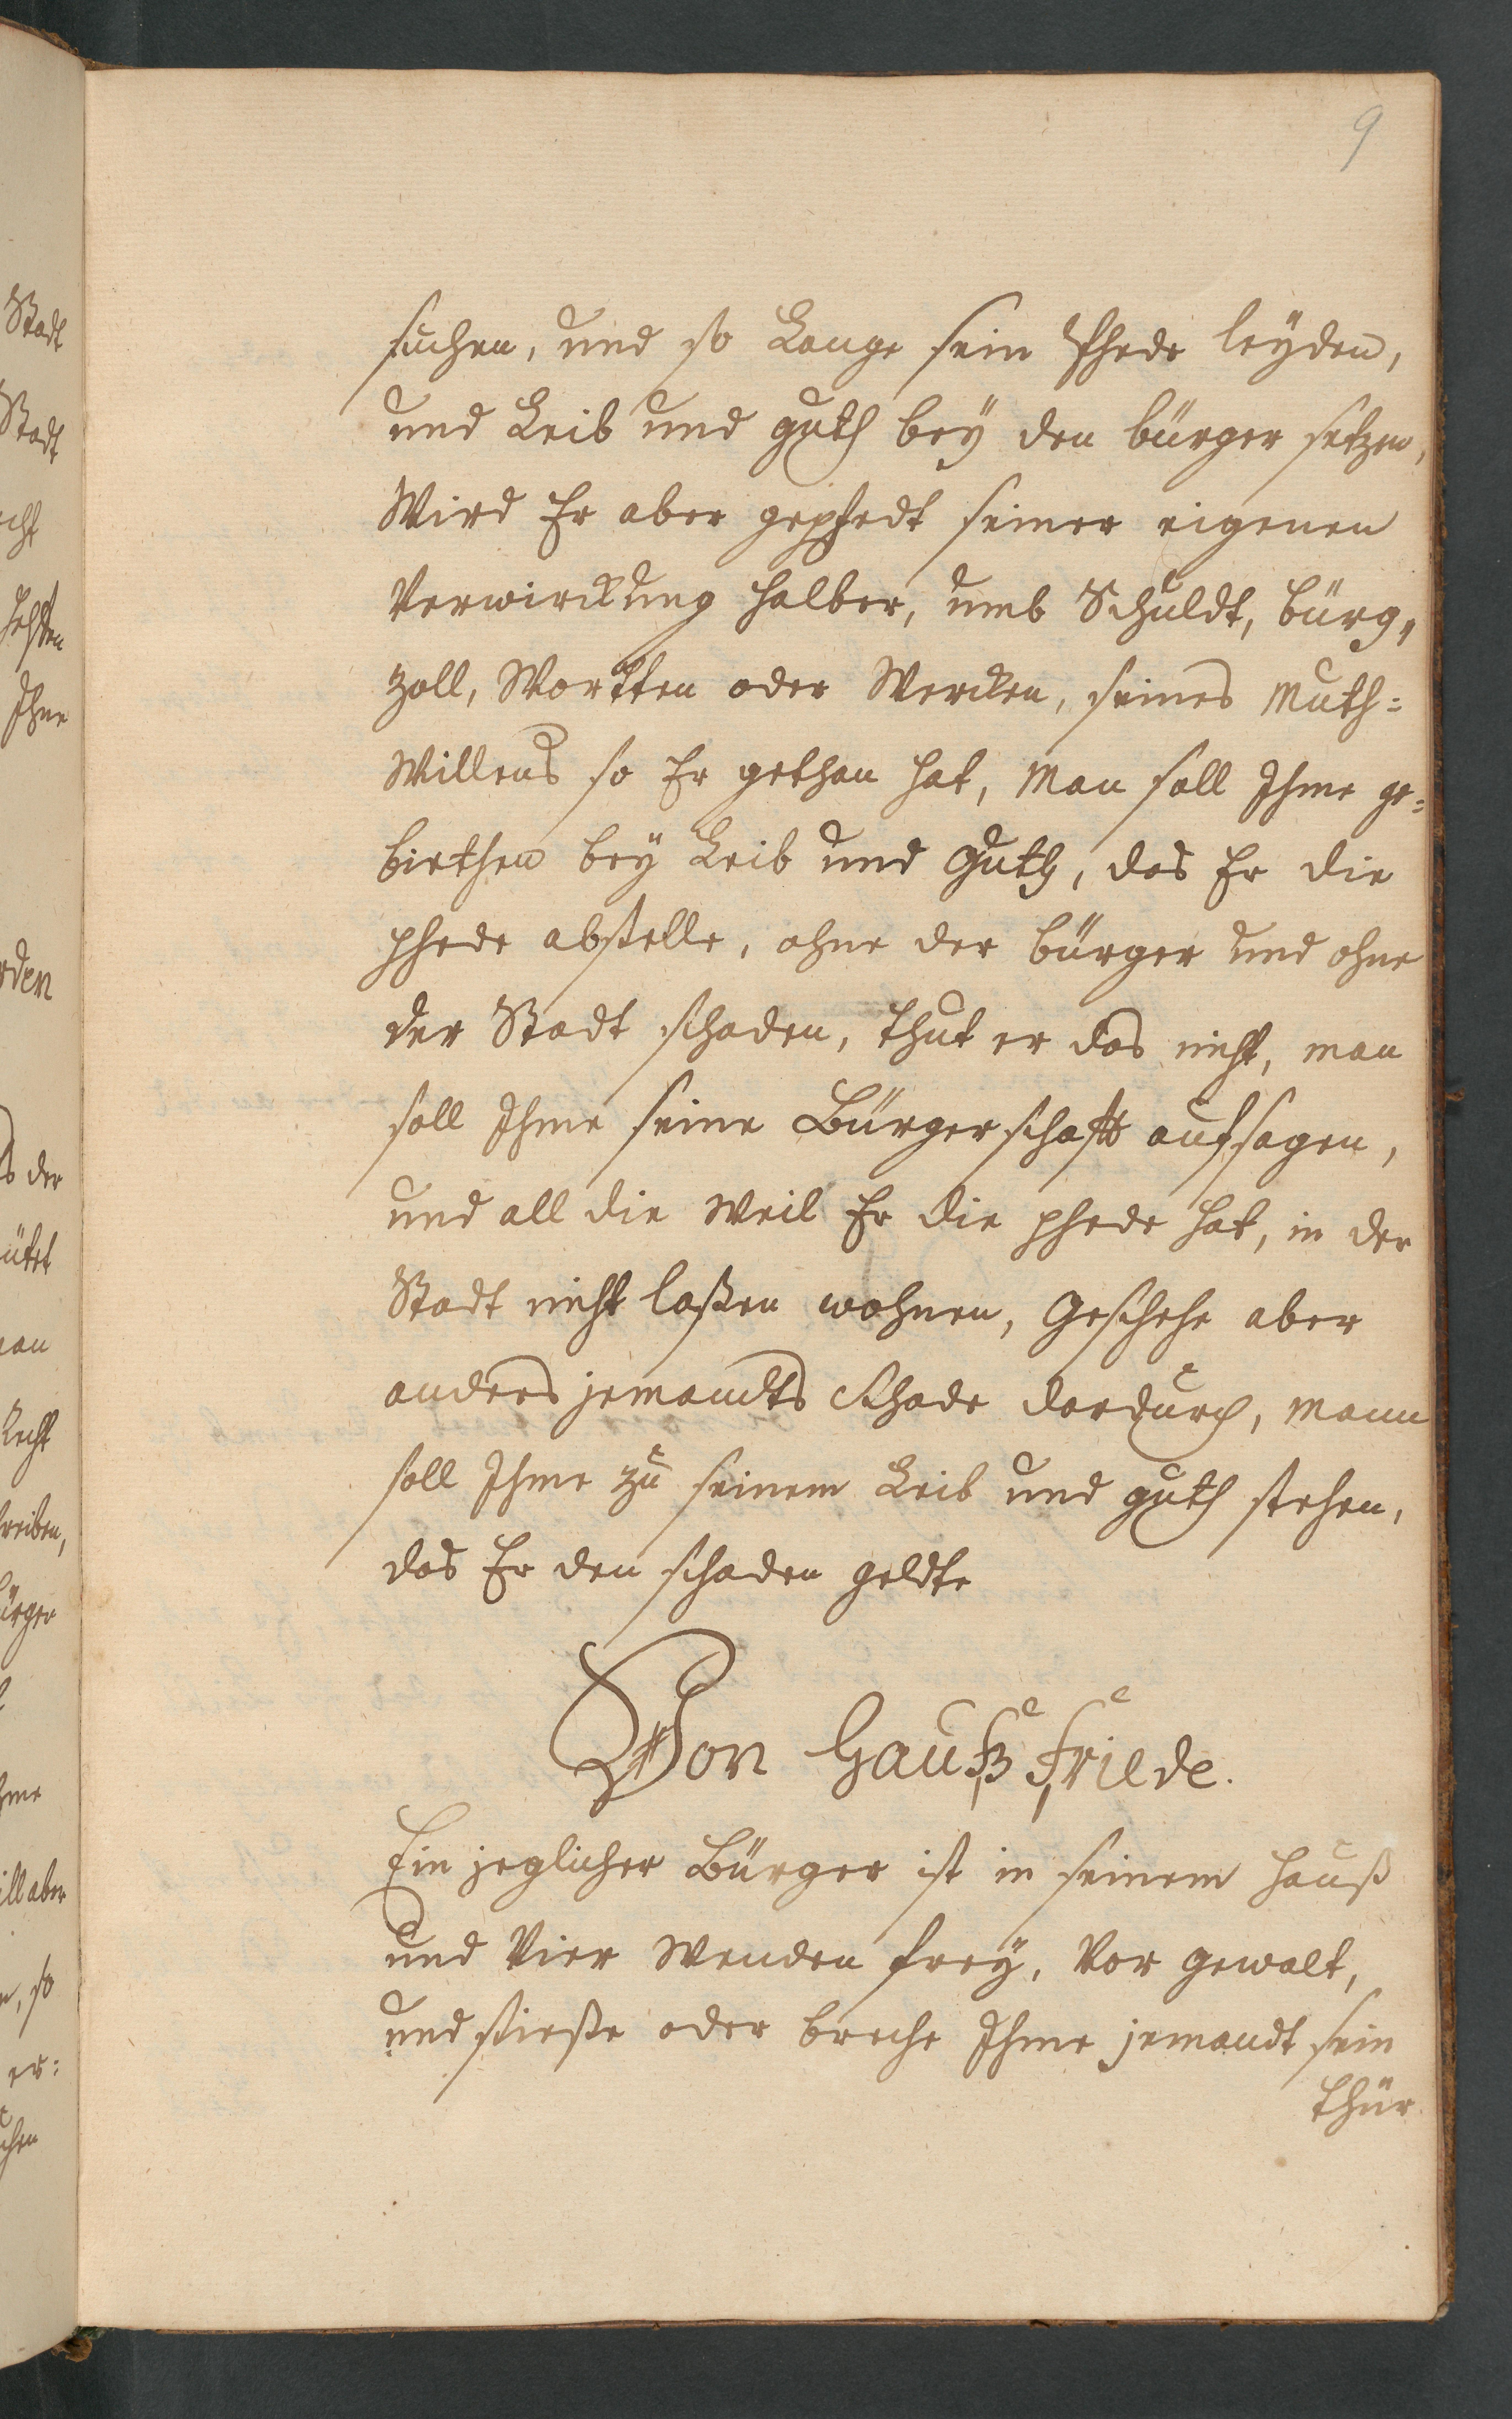 9
suchen, und so Lange sein Phede leÿden,
und Leib und guth beÿ den bürger setzen,
Wird Er aber gephedt seiner eigenen
Verwirckung halber, umb Schuldt, bürg,,
zoll, Wortten oder Wercken, seines Muth=
Willens so Er gethan hat, Man soll Ihme ge=
biethen beÿ Leib und Guth, das Er die
phede abstelle, ohne der bürger und ohne
der Stadt schaden, thut er das nicht, man
soll Ihme seine Bürgerschafft aufsagen,
und all die Weil Er die phede hat, in der
Stadt nicht laßen wohnen, Geschehe aber
anders jemandts Schade dardurch, Mann
soll Ihme zu seinem Leib und guth stehen,
das Er den schaden geldte
Von Hauß Friede.
Ein jeglicher Bürger ist in seinem Hauß
und Vier Wenden freÿ, Vor gewalt,
und stieße oder breche Ihme jemandt sein
thür